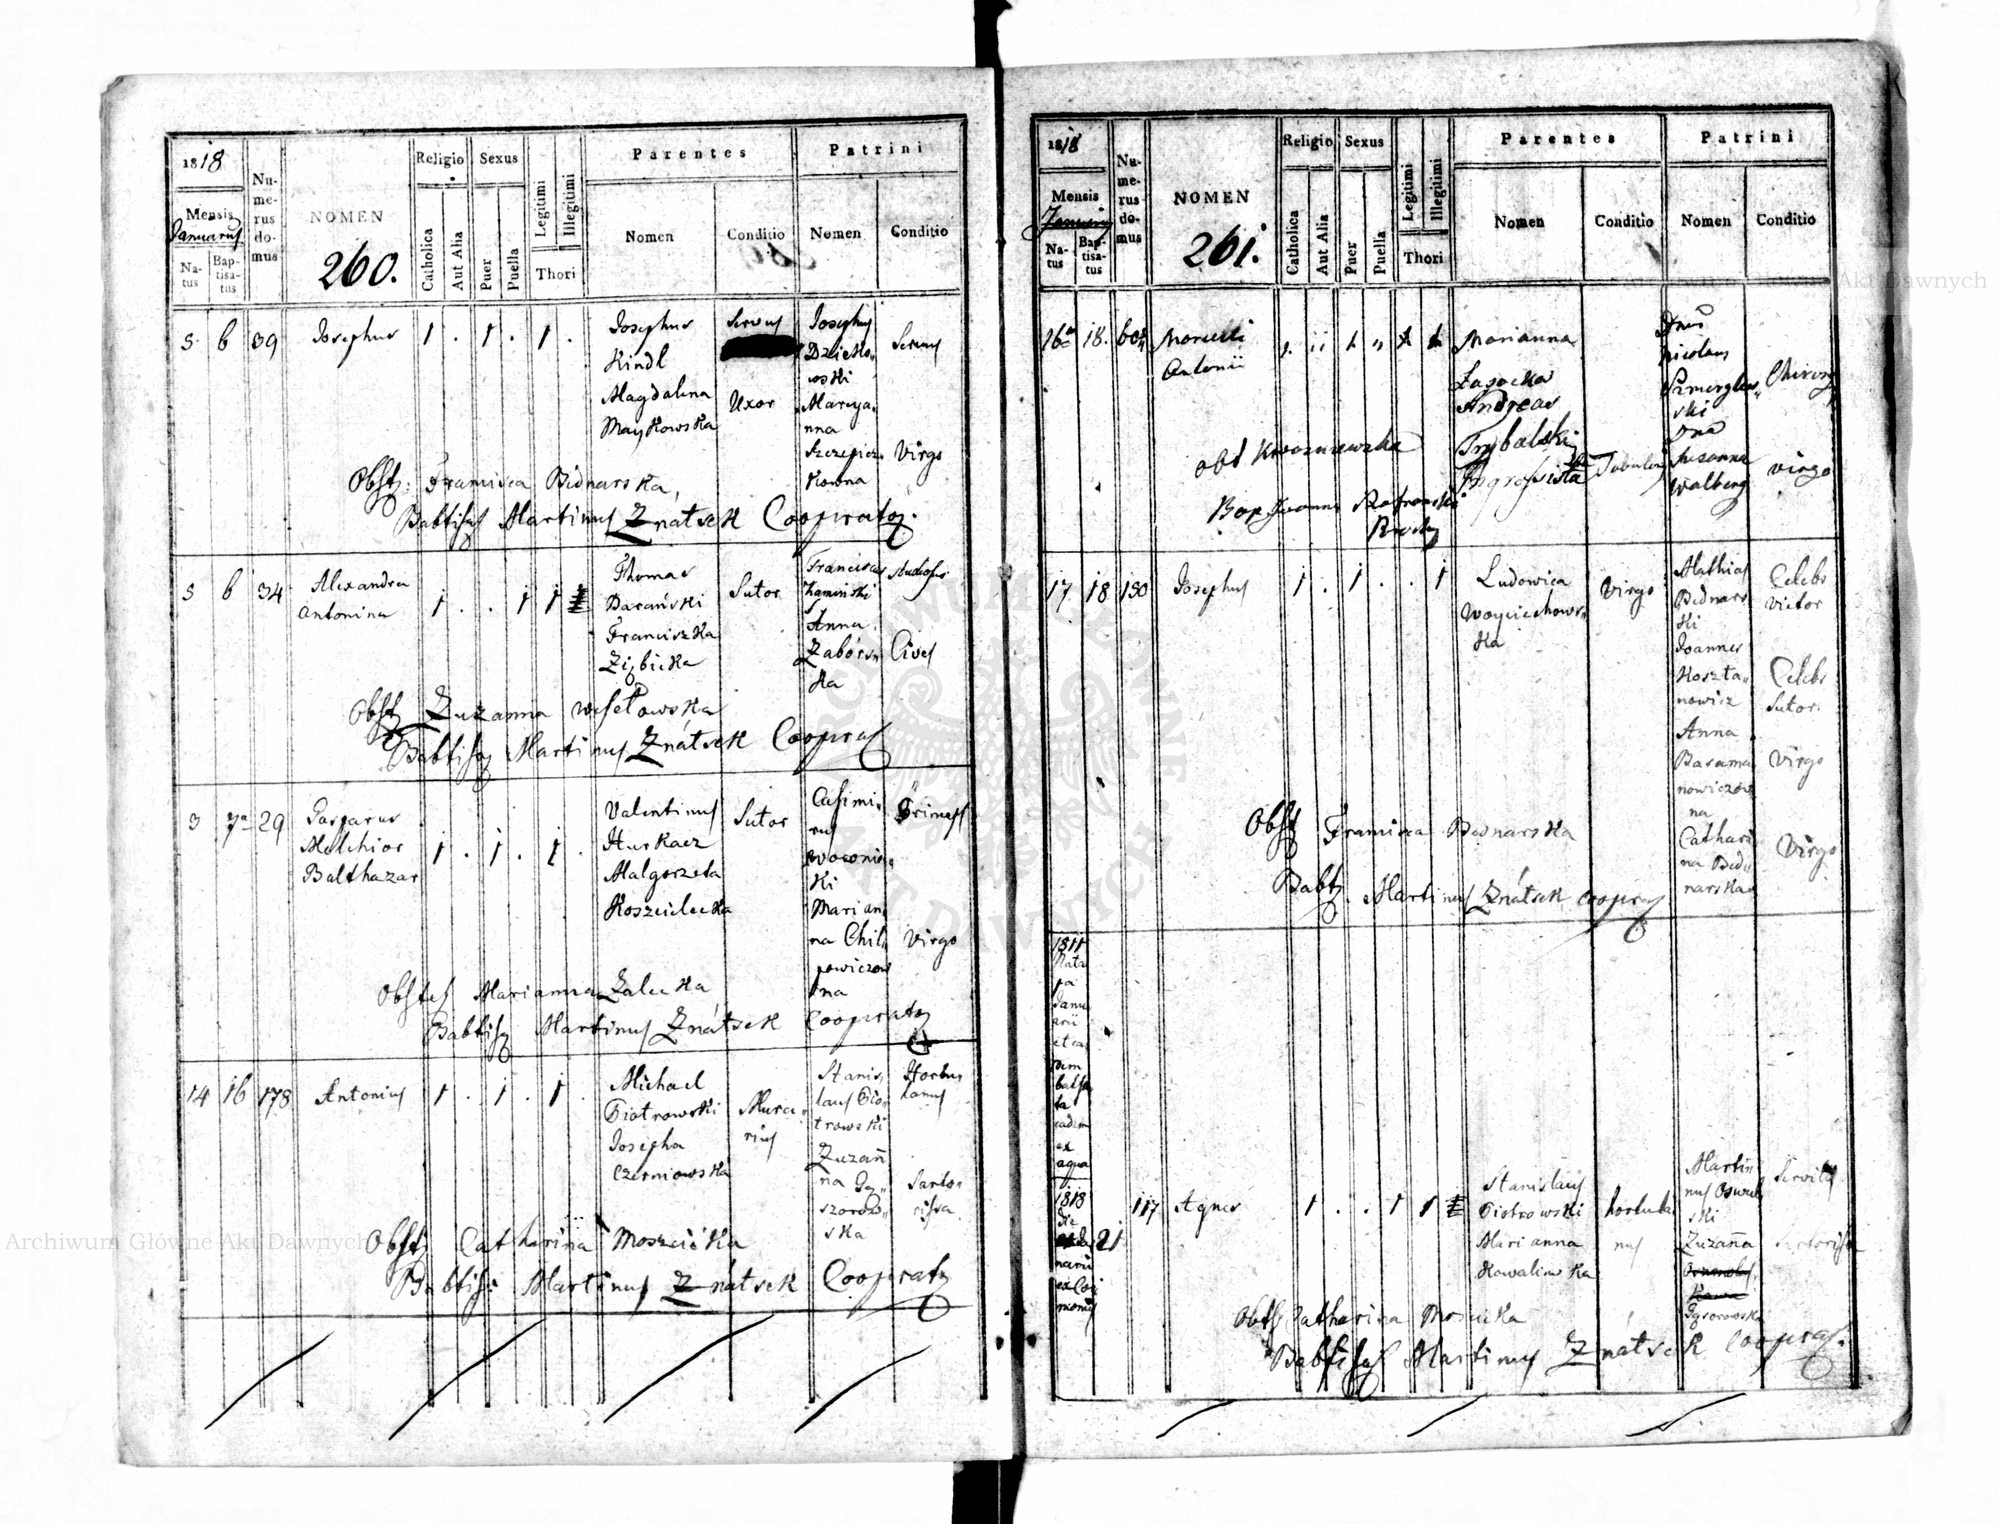 1818.
Mensis
Januarius
Natus
Baptisatus
Numerus domus
NOMEN
260.
Religio
Catholica
Aut Alia
Sexus
Puer
Puella
Legitimi
Illegitimi
Thori
Parentes
Nomen
Conditio
Patrini
Nomen
Conditio
5. 6 39 Josephus 1 . 1 . 1 .
Josephus
Kindl
Magdalena
Maykowska
Servus
Uxor
Josephus
Dzieko-
wski
Marya-
nna
Szczepicz-
kowna
Servus
Virgo
Obst: Francisca Bednarska,
Babtisus Martinus Znátsek Cooprator.
5 6 34
Alexandra
Antonina
1 . . 1 1
Thomas
Barański
Franciszka
Ziębicka
Sutor
Franciscus
Kamiński
Anna
Zabórs-
ka
studiosus
Cives
Obst Zuzanna wesełowska
Babtisa Martinus Znátsek Cooprat
3 7a 29
Gasparus
Melchior
Balthazar
1 . 1 . 1 .
Valentinus
Hurkacz
Malgorzeta
Koszcielecka
Sutor
Casimi-
rus
Woconic-
ki
Marian-
na Chili-
powiczow
na
Virgo
Obstet Marianna Zalecka
Babtisa Martinus Znátsek Cooprator
14 16 178 Antonius 1 . 1 . 1 .
Michael
Piotrowski
Josepha
Czerniowska
Mura-
rius
Stanis-
laus Pio-
trowski
Zuzañ
na Gą-
szorow-
ska
Hortu
lanus
Sarto-
rissa
Obst Catharina Moszcićka
Babtis: Martinus Znátsek Cooprator
1818
Mensis
Januarius
Natus
Baptisatus
Numerus domus
NOMEN
261.
Religio
Catholica
Aut Alia
Sexus
Puer
Puella
Legitimi
Illegitimi
Thori
Parentes
Nomen
Conditio
Patrini
Nomen
Conditio
16a 18. 60
Marcelli
Antonii
Marianna
Lasocka
Andreas
Trybalski
Ingrossista
Tabular
Dnus
Nicolaus
ski
Dna
Susanna
Walberg
Chirurg
virgo
obs Kwasniewska
Bap Joannes
17 18 130 Josephus 1 . 1 . . 1
Ludowica
Woyciechows-
ka
Virgo
Mathias
Bednars
ki
Joannes
Koszta-
nowicz
Anna
Basama
nowiczow
na
Cathari
na Bed-
narska
Celebs
victor
Celebs
Sutor.
Virgo
Virgo
Obst Francisca Bednarska
Babt. Martinus Znátsek cooprat
1811
Nata
Janu
arii
et ea
dem
ta
eadem
ex
aqua
1818
die
21
117 Agnes 1 . . 1 1
Stanislaus
Piotrowski
Marianna
Kowalinska
hortula
nus
Martin
nus
ski
Zuzaña
Gąsorowska
Servilis
Sartorissa
Obst Catharina Moscicka
Babtisat Martinus Znátsek Cooprat.
Archiwum Główne Akt Dawnych
ARCHIWUM GŁÓWNE
AKT DAWNYCH
Archiwum Główne Akt Dawnych